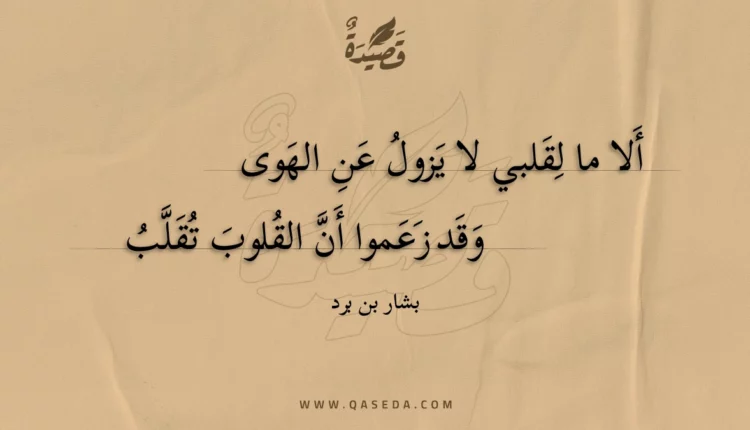 قَصِيدَةٌ
أَلا ما لِقَلبي لا يَزولُ عَنِ الهَوى
وَقَد زَعَموا أَنَّ القُلوبَ تُقَلَّبُ
بشار بن برد
WWW.QASEDA.COM